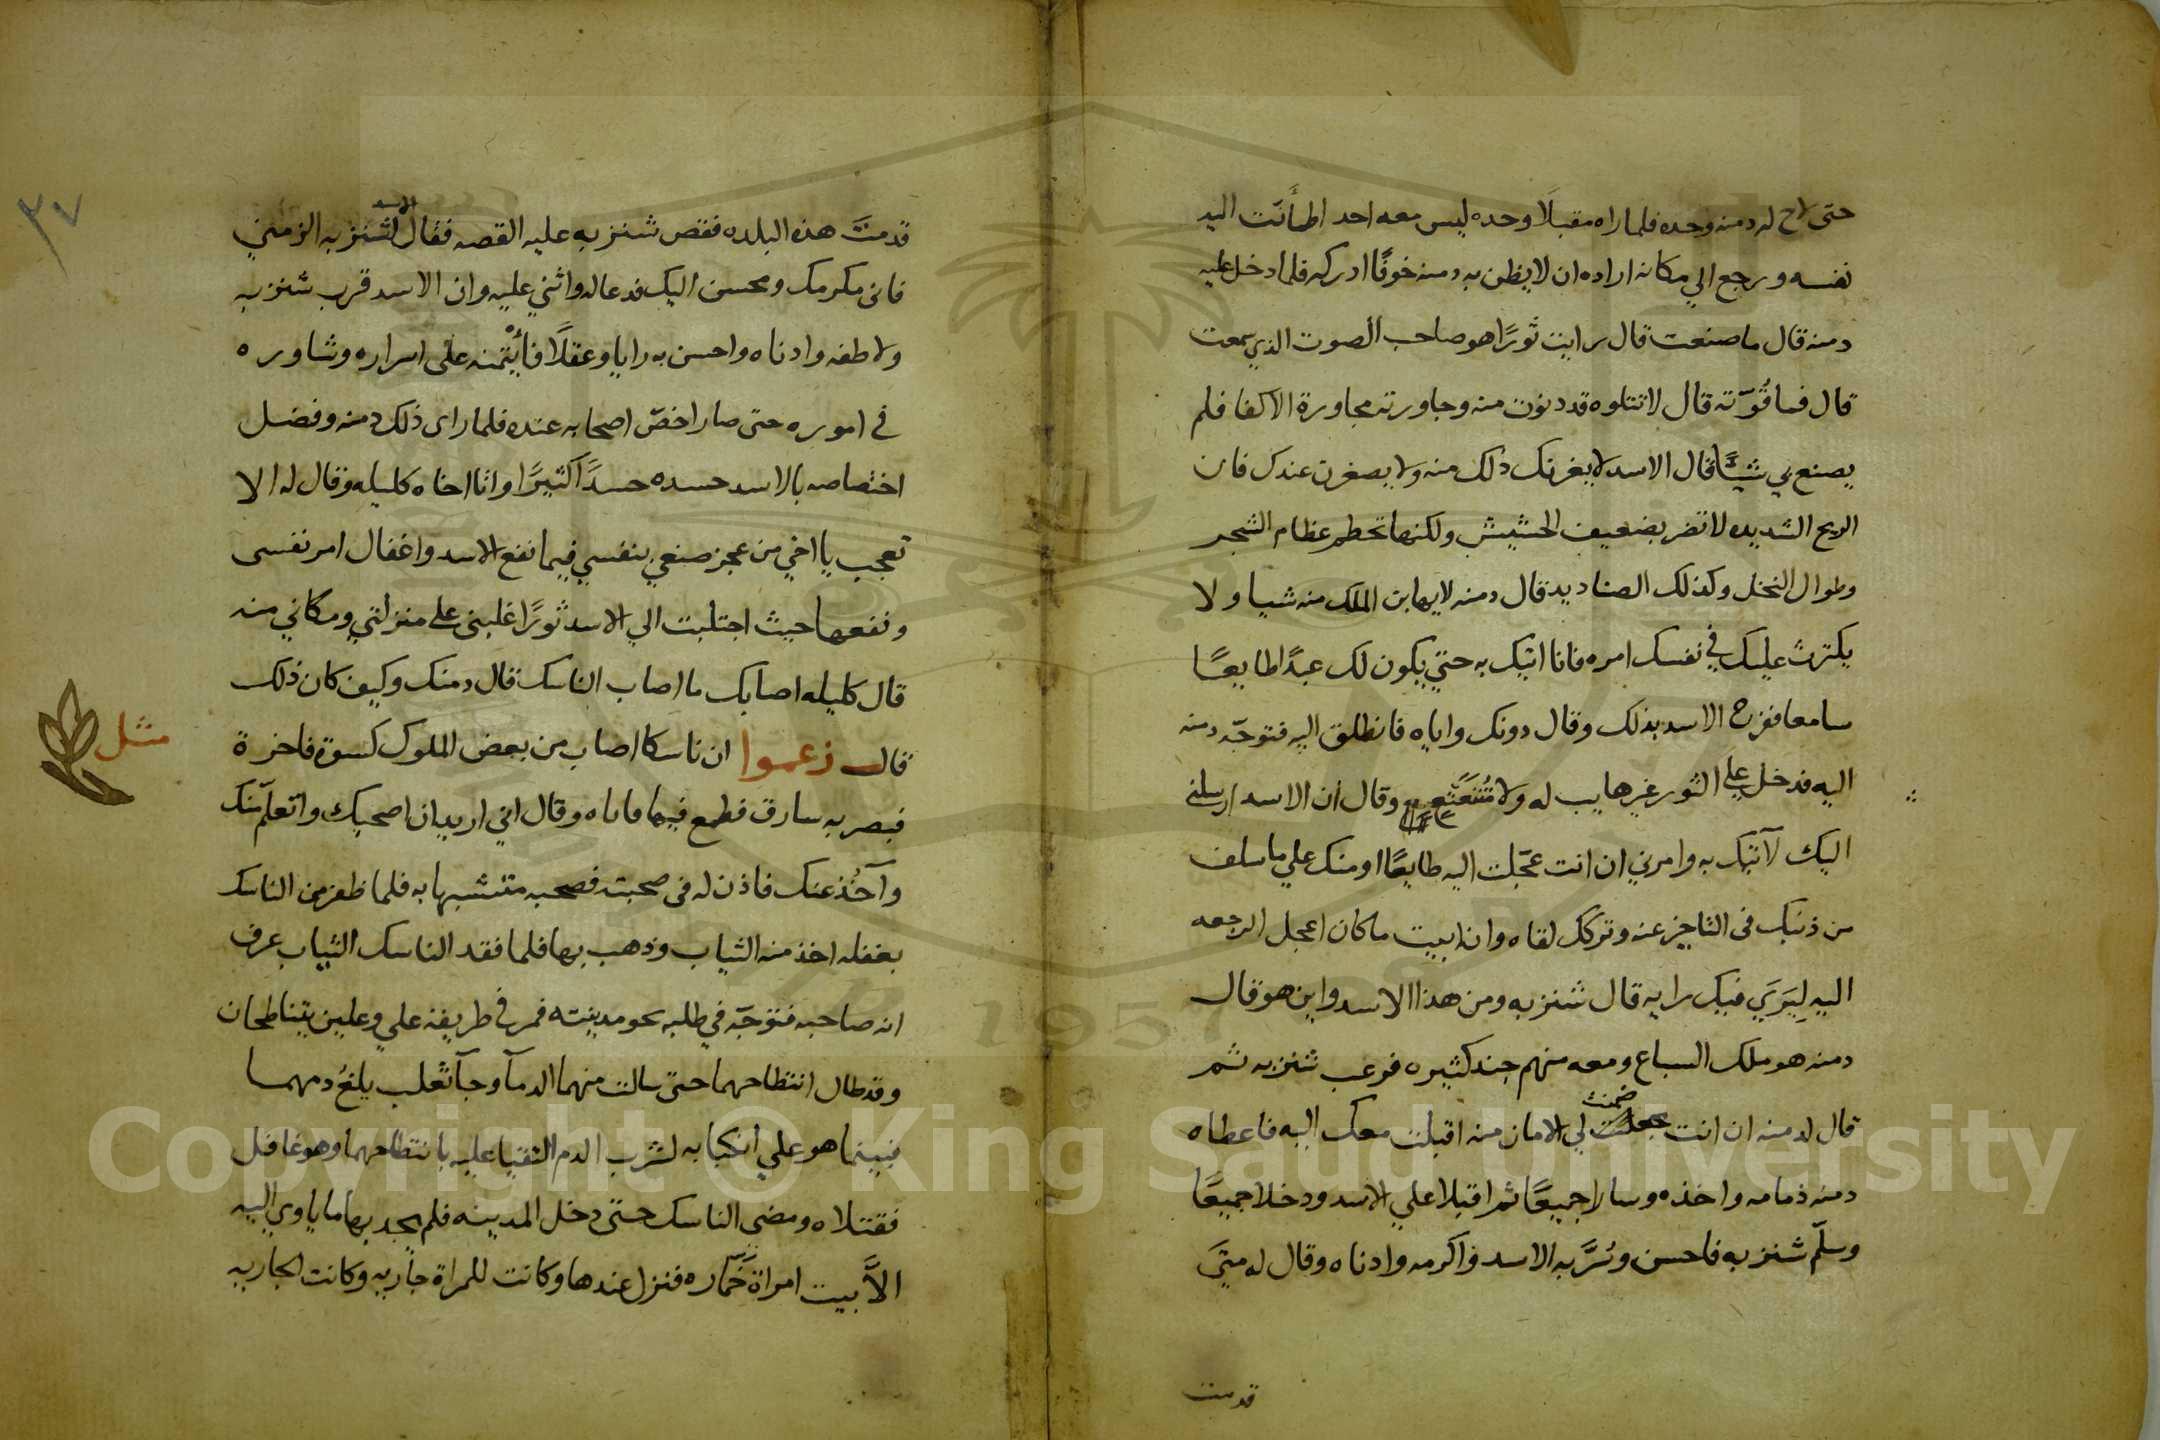 حتى لاح له دمنه وحده فلما راه مقبلا وحده ليس معه احد اطمأنت اليه
نفسه ورجع الي مكانه اراده ان لا يظن به دمنه خوفًا ادركه فلما دخل عليه
دمنه قال ما صنعت قال رايت ثورًا هو صاحب الصوت الذي سمعت
قال فما قُوّته قال لا تتلوه قد دنوت منه وجاورته مجاورة الاكفا فلم
يصنع بي شيًا قال الاسد لا يغرنك ذلك منه ولا يصغرن عندك فان
الريح الشديده لا تضر بضعيف الحشيش ولكنها تحطم عظام الشجر
وطوال النخل وكذلك الصناديد قال دمنه لا يهابن الملك منه شيا ولا
يكترث عليك في نفسك امره فانا اتيك به حتي يكون لك عبدًا طايعًا
سامعا ففرح الاسد بذلك وقال دونك واياه فانطلق اليه فتوجّه دمنه
اليه فدخل علي الثور غير هايب له ولا مُتَتَعْتِع وقال ان الاسد ارسلني
اليك لآتيك به وامرني ان انت عجّلت اليه طايعًا اومنك علي ما سلف
من ذنبك فى التاخير عنه وتركك لقاه وان ابيت ما كان اعجل الرجعه
اليه لِيَرَي فيك رايه قال شنزبه ومن هذا الاسد واين هو قال
دمنه هو ملك السباع ومعه منهم جند كثيره فرعب شنزبه ثم
قال لدمنه ان انت جعلت ضمنت لي الامان منه اقبلت معك اليه فاعطاه
دمنه ذمامه واخذه وسارا جميعًا ثم اقبلا علي الاسد ودخلا جميعًا
وسلّم شنزبه فاحسن وسُرَّ به الاسد واكرمه وادناه وقال له متيَ
قدمت
٣٧
قدمتَ هذه البلده فقص شنزبه عليه القصه فقال الاسد لشنزبه الزمني
فانى مكرمك ومحسن اليك فدعا له واثني عليه وان الاسد قرب شنزبه
ولاطفه وادناه واحسن به رايا وعقلًا فائتمنه على اسراره وشاوره
في اموره حتى صار اخصّ اصحابه عنده فلما راى ذلك دمنه وفضل
اختصاصه بالاسد حسده حسدًا كثيرًا واتا اخاه كليله وقال له الا
تعجب يا اخي من عجز صنعي بنفسي فيما نفع الاسد واغفال امر نفسى
ونفعها حيث اجتلبت الي الاسد ثورًا غلبنى علي منزلتي ومكاني منه
قال كليله اصابك ما اصاب الناسك قال دمنك وكيف كان ذلك
قال زعموا ان ناسكا اصاب من بعض الملوك كسوة فاخرة
مثل
فبصر به سارق فطمع فيها فاتاه وقال اني اريد ان اصحبك واتعلّم منك
وآخُذ عنك فاذن له فى صحبته فصحبه متشبها به فلما ظفر من الناسك
بغفله اخذ منه الثياب وذهب بها فلما فقد الناسك الثياب عرف
انه صاحبه فتوجّه في طلبه نحو مدينته فمر في طريقه علي وعلين يتناطحان
وقد طال انتطاحهما حتى سالت منهما الدمآ وجآ ثعلب يلغُ دمهما
فبينما هو علي انكبابه لشرب الدم التقيا عليه بانتطاحهما وهو غافل
فقتلاه ومضي الناسك حتى دخل المدينه فلم يجد بها ما ياوي اليه
الاَّ بيت امراة خَمّاره فنزل عندها وكانت للمراة جاريه وكانت الجاريه
Copyright © King Saud University
1957